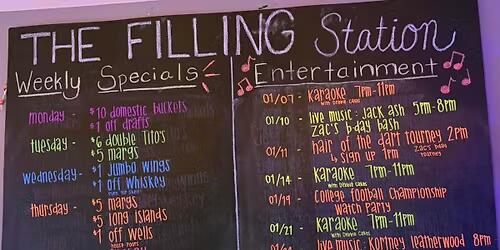 THE FILLING Station
Weekly Specials
monday - $10 domestic buckets
$1 off drafts
tuesday - $6 double Tito's
$5 margs
wednesday - $1 Jumbo wings
$1 off whiskey
thursday - $5 margs
$5 long islands
$1 off wells
Entertainment
01/07 - Karaoke 7pm-11pm
01/10 - live music: Jack Ash 5pm-8pm
Zac's b-day bash
01/11 - hair of the dart tourney 2pm
↳ sign up 1pm Zac's b-day tourney
01/14 - Karaoke 7pm-11pm
01/19 - College Football Championship
Watch Party
01/21 - Karaoke 7pm-11pm
live music: leatherwood 8pm